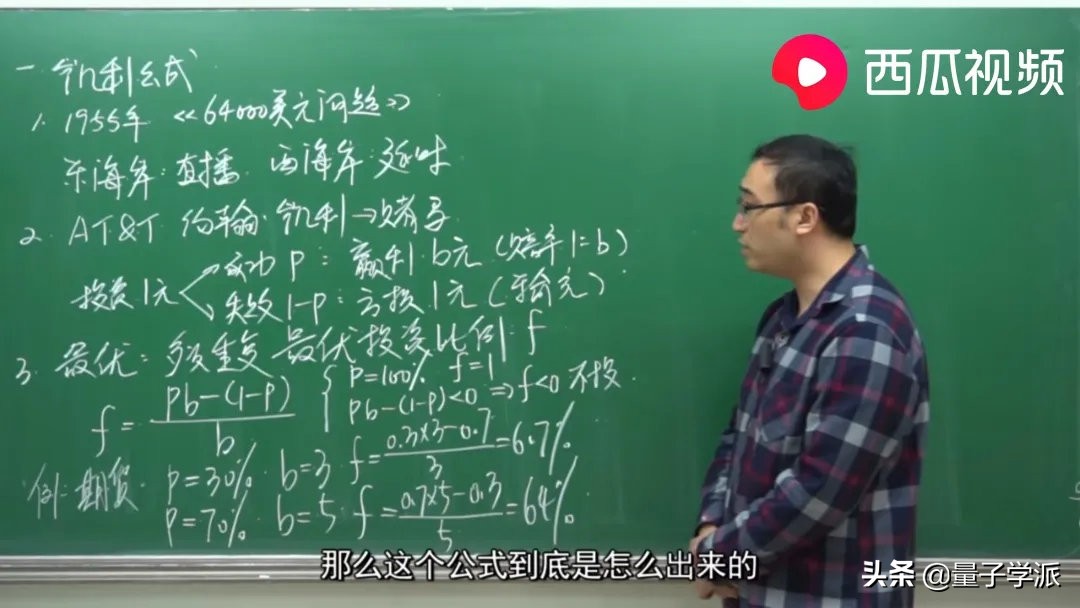 西瓜视频
一 凯利公式
1. 1955年 《64000美元问题》
东海岸:直播 西海岸:延时
2. AT&T 约翰·凯利→赌马
投资1元 成功 P: 赢利 b元 (赔率1=b)
失败 1-P: 亏损1元 (输完)
3. 最优: 多次重复 最优投资比例: f
f=\frac{Pb-(1-P)}{b}
P=100% f=1
Pb-(1-P)<0 ⇒ f<0 不投.
例: 期货 P=30% b=3 f=\frac{0.3×3-0.7}{3}=6.7%
P=70% b=5 f=\frac{0.7×5-0.3}{5}=64%
那么这个公式到底是怎么出来的
头条 @量子学派